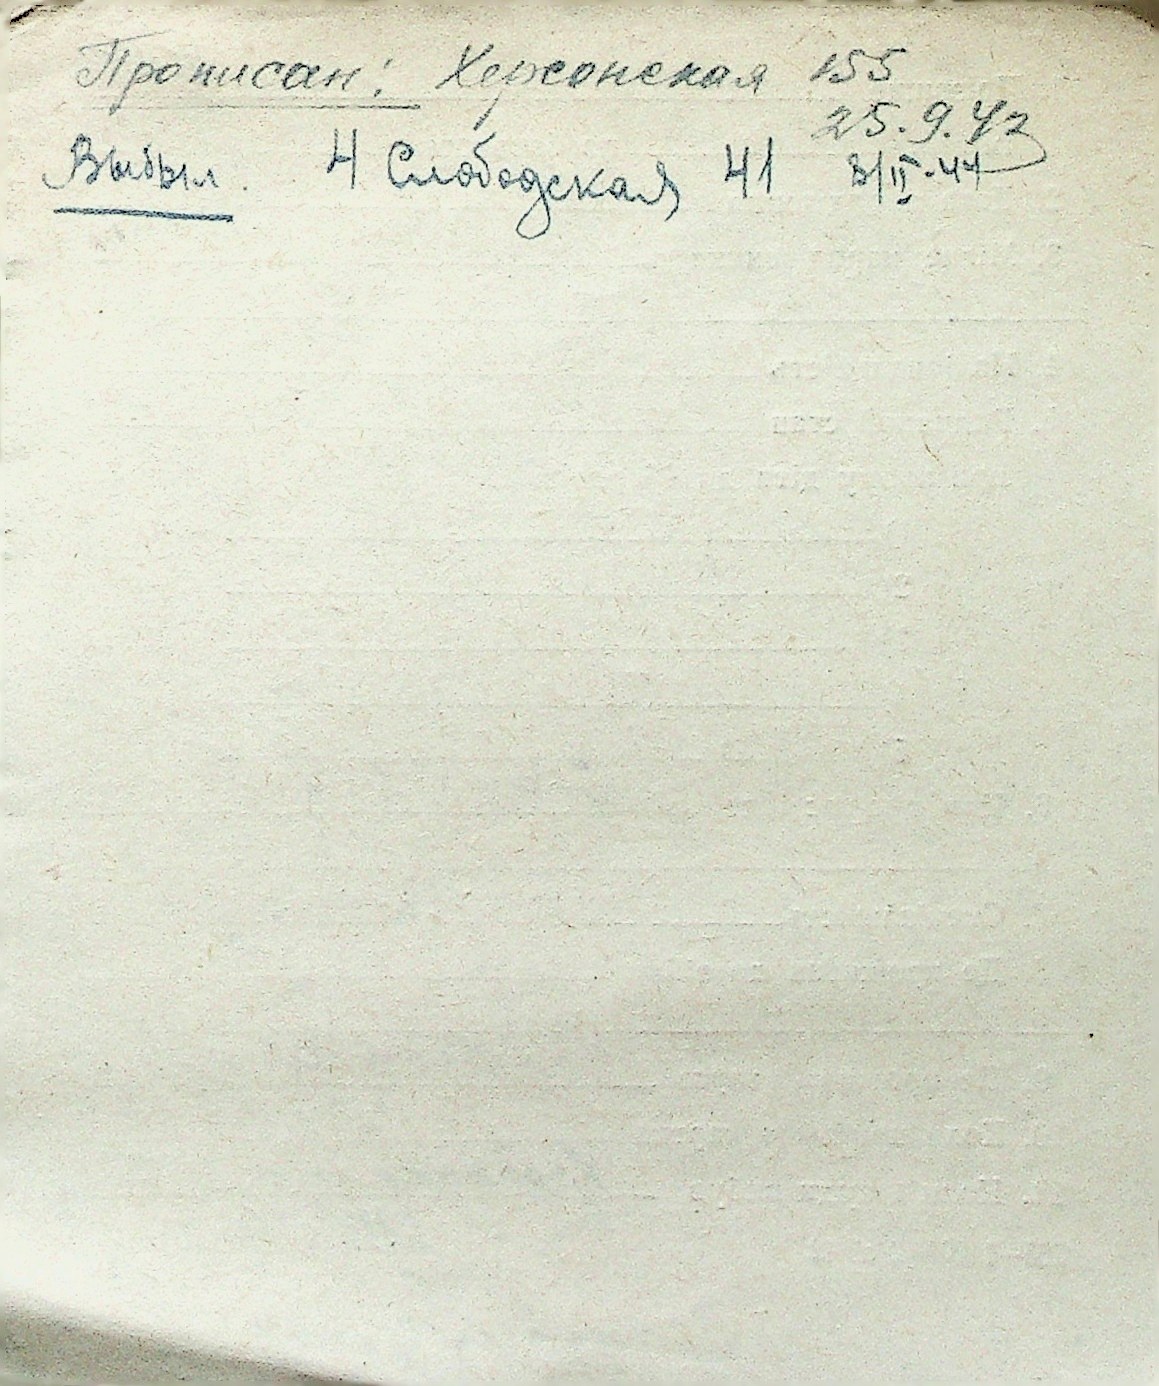 Прописан: Херсонская 155
25.9.42
Выбыл. 4 Слободская 41 8/II-44